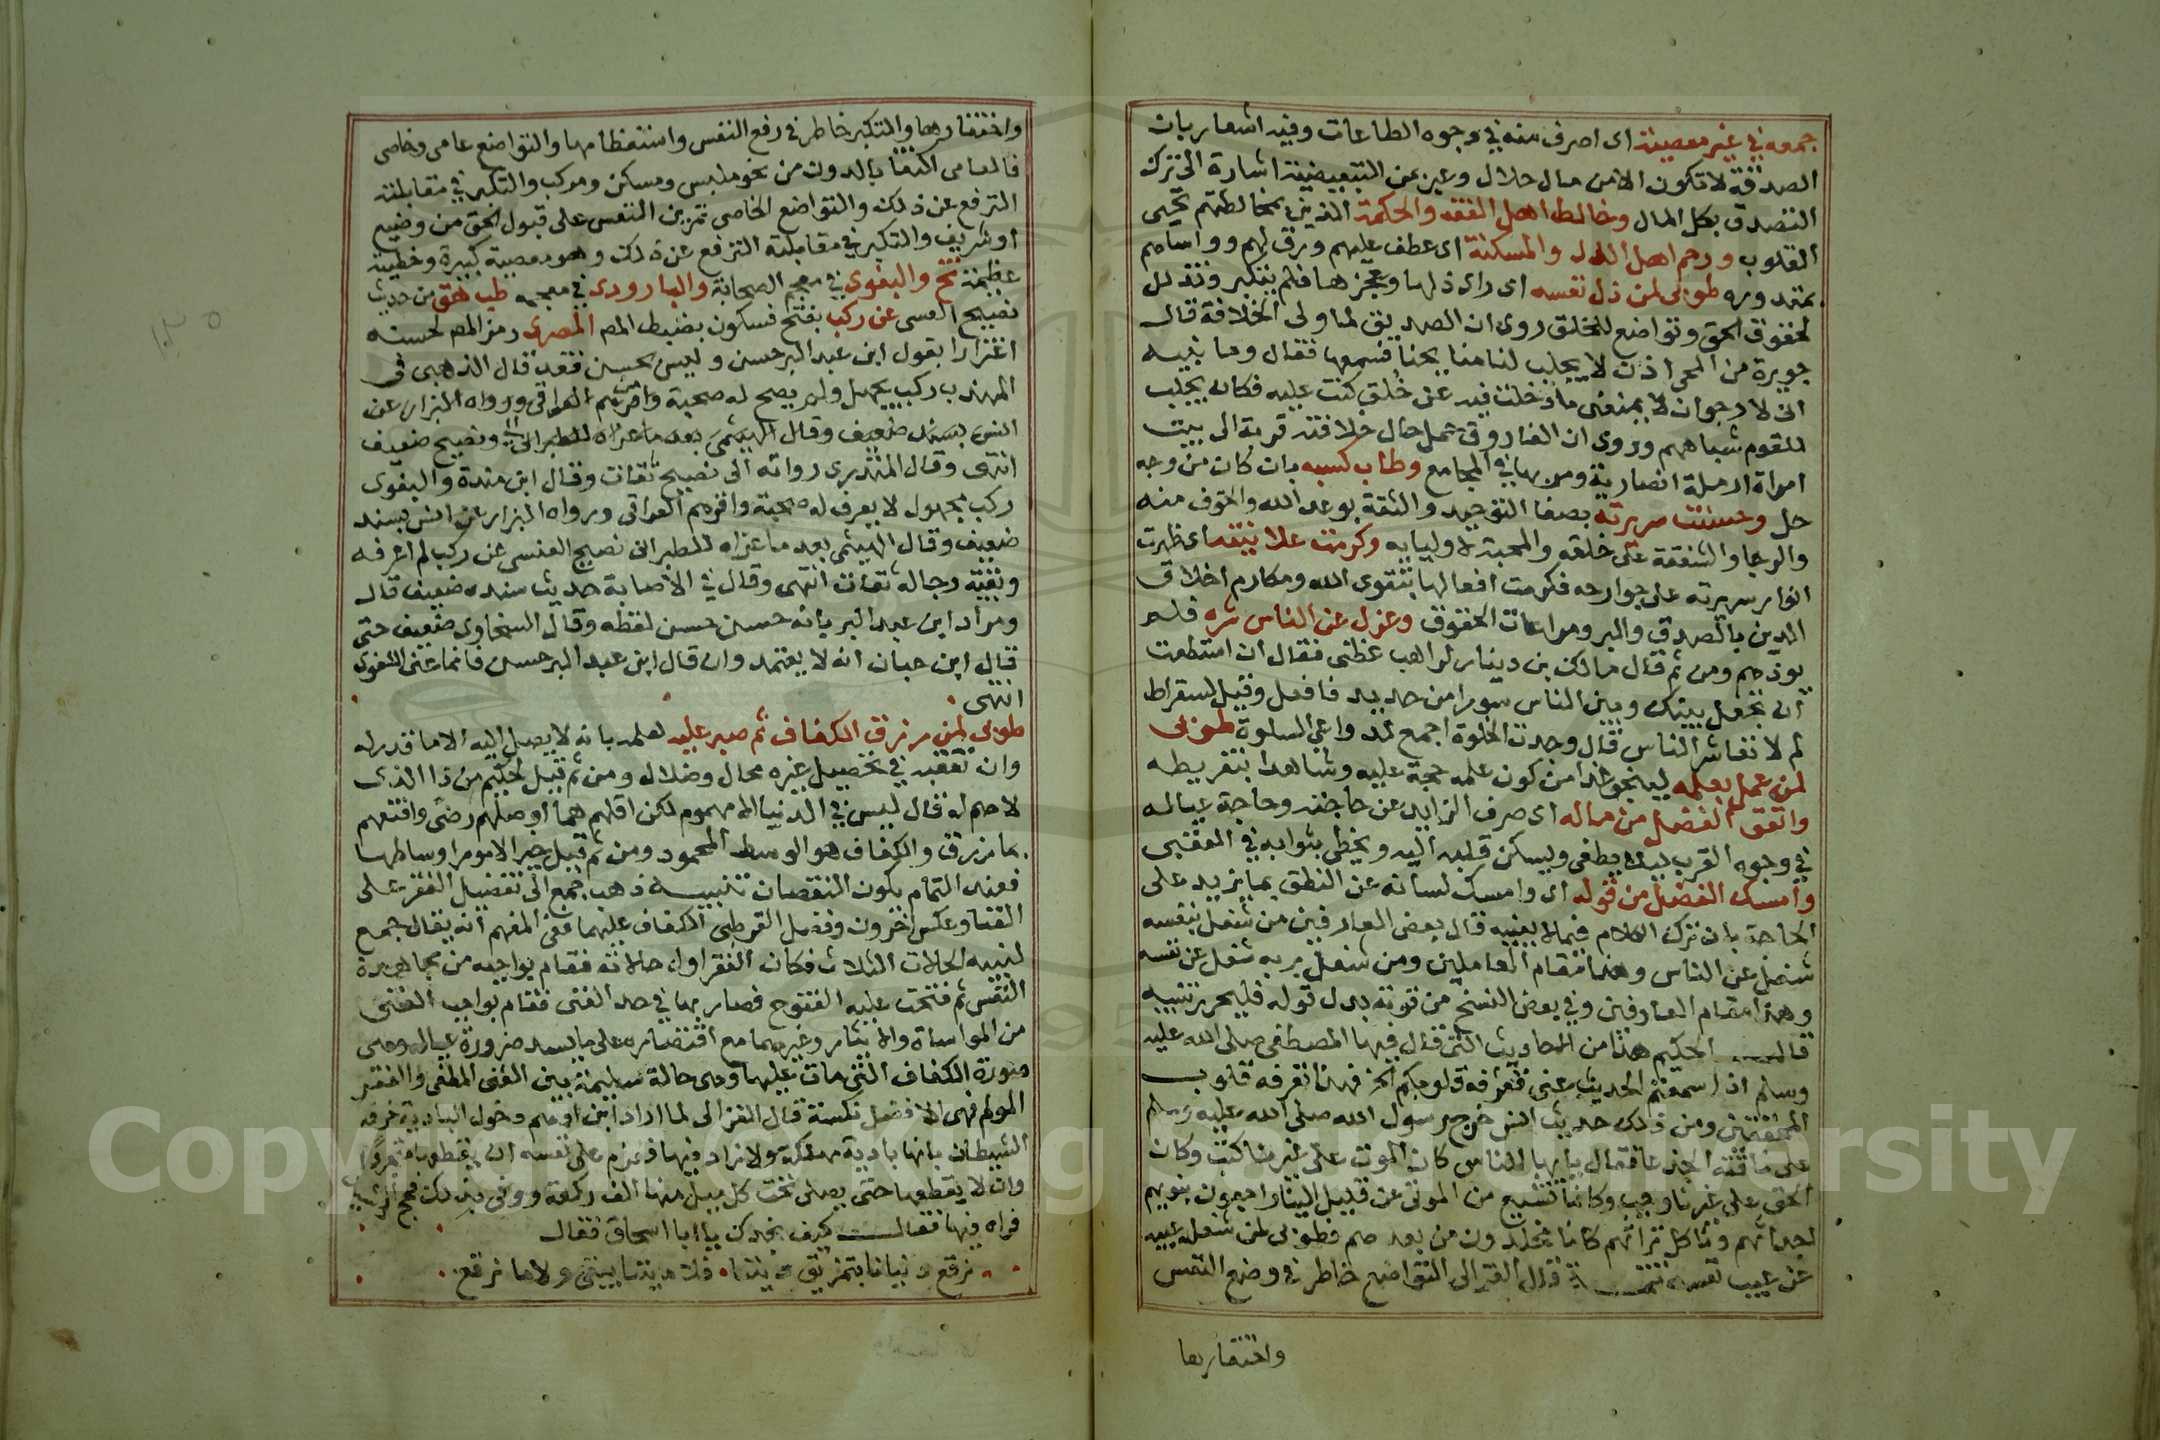 جمعه في غير معصية اى اصرف منه في وجوه الطاعات وفيه اشعار بان
الصدقة لا تكون الا من مال حلال وعبر بمن التبعيضية اشارة الى ترك
التصدق بكل المال وخالط اهل الفقه والحكمة الذين بمخالطتهم تحيى
القلوب ورحم اهل الذل والمسكنة اى عطف عليهم ورق لهم وواساهم
بمقدوره طوبى لمن ذل نفسه اى راى ذلها وعجزها فلم يتكبر وتذلل
لحقوق الحق وتواضع للخلق روى ان الصديق لما ولى الخلافة قالت
جويرة من الحى اذن لا يجلب لنا منايحنا فسمعها فقال وما بنيه
انى لارجوان لا يمنعنى ما دخلت فيه عن خلق كنت عليه فكان يجلب
للقوم شياههم وروى ان الفاروق حمل حال خلافته قربة الى بيت
امراة ارملة انصارية ومر بها في المجامع وطاب كسبه بان كان من وجه
حل وحسنت سريرته بصفا التوحيد والثقة بوعد الله والخوف منه
والرجا والشفقة على خلقه والمحبة لاوليايه وكرمت علانيته اى ظهرت
انوار سريرته على جوارحه فكرمت افعالها بتقوى الله ومكارم اخلاق
الدين بالصدق والبر ومراعات الحقوق وعزل عن الناس شره فلم
يوذهم ومن ثم قال مالك بن دينار لراهب عظنى فقال ان استطعت
ان تجعل بينك وبين الناس سورا من حديد فافعل وقيل لسقراط
لم لا تعاشر الناس قال وجدت الخلوة اجمع لدواعى السلوة طوبى
لمن عمل بعلمه لينجو غدا من كون علمه حجة عليه وشاهدا بتفريطه
وانفق الفضل من ماله اى صرف الزايد عن حاجته وحاجة عياله
في وجوه القرب ليلا يطغى ويسكن قلبه اليه ويحظى بثوابه في العقبى
وامسك الفضل من قوله اى وامسك لسانه عن النطق بما يزيد على
الحاجة بان ترك الكلام فيما لا يعنيه قال بعض العارفين من شغل بنفسه
شغل عن الناس وهذا مقام العاملين ومن شغل بربه شغل عن نفسه
وهذا مقام العارفين وفي بعض النسخ من قوته بدل قوله فليحرر تنبيه
قال الحكيم هذا من الاحاديث التى قال فيها المصطفى صلى الله عليه
وسلم اذا سمعتم الحديث عنى فتعرفه قلوبكم الخ فهذا تعرفه قلوب
المحققين ومن ذلك حديث انس خرج رسول الله صلى الله عليه وسلم
على ناقته الجدعا فقال يا ايها الناس كان الموت على غيرنا كتب وكان
الحق على غيرنا وجب وكانما نشيع من الموتى عن قليل الينا راجعون نبويهم
اجداثهم وناكل تراثهم كانا مخلدون من بعدهم فطوبى لمن شغله عيبه
عن عيب نفسه تتمة قال الغزالى التواضع خاطر في وضع النفس
واحتقارها
واحتقارها والتكبر خاطر في رفع النفس واستعظامها والتواضع عامى وخاصى
فالعامى اكتفا بالدون من نحو ملبس ومسكن ومركب والتكبر في مقابلته
الترفع عن ذلك والتواضع الخاصى تمرين النفس على قبول الحق من وضيع
او شريف والتكبر في مقابلته الترفع عن ذلك وهو معصية كبيرة وخطية
عظيمة تخ والبغوى في معجم الصحابة والباوردى في معجمه طب هق من حديث
نصيح العنسى عن ركب بفتح فسكون بضبط المص المصرى رمز المص لحسنه
اغترارا بقول ابن عبد البر حسن وليس بحسن فقد قال الذهبى فى
المهذب ركب يجهل ولم يصح له صحبة واقرهم العراقى ورواه البزار عن
انس بسند ضعيف وقال الهيثمى بعد ما عزاه للطبرانى ونصيح ضعيف
انتهى وقال المنذرى رواته الى نصيح ثقات وقال ابن مندة والبغوى
ركب مجهول لا يعرف له صحبة واقرهم العراقى ورواه البزار عن انس بسند
ضعيف وقال الهيثمى بعد ما عزاه للطبرانى نصيح العنسى عن ركب لم اعرفه
وبقية رجاله ثقات انتهى وقال في الاصابة حديث سنده ضعيف قال
ومراد ابن عبد البر بانه حسن حسن لفظه وقال السخاوى ضعيف حتى
قال ابن حبان انه لا يعتمد وان قال ابن عبد البر حسن فانما عنى اللغوى
انتهى
طوبى لمن رزق الكفاف ثم صبر عليه لعلمه بانه لا يصل اليه الا ما قدر له
وان تعبه في تحصيل غيره محال وضلال ومن ثم قيل لحكيم من ذا الذى
لا هم له قال ليس في الدنيا الا مهموم لكن اقلهم هما اوصلهم رضى واقنعهم
بما رزق والكفاف هو الوسط المحمود ومن ثم قيل خير الامور اوساطها
فعند التمام يكون النقصان تنبيه ذهب جمع الى تفضيل الفقر على
الغنا وعكس اخرون وفضل القرطبى الكفاف عليهما ففى المفهم انه يقال جمع
لنبيه الحالات الثلاث فكان الفقر اول حالاته فقام بواجبه من مجاهدة
النفس ثم فتحت عليه الفتوح فصار بها في حد الغنى فقام بواجب الغنى
من المواساة والايثار وغيرهما مع اقتصاره على ما يسد ضرورة عياله وهى
صورة الكفاف التى مات عليها وهى حالة سليمة بين الغنى المطغى والفقر
المولم فهى الافضل نكتة قال الغزالى لما اراد ابن ادهم دخول البادية خوفه
الشيطان بانها بادية مهلكة ولا زاد فيها فعزم على نفسه ان يقطعها متجردا
وان لا يقطعها حتى يصلى تحت كل ميل منها الف ركعة ووفى بذلك فحج الرشيد
فراه فيها فقال كيف تجدك يا ابا اسحاق فقال
نرقع دنيانا بتمزيق ديننا فلا ديننا يبقى ولا ما نرقع